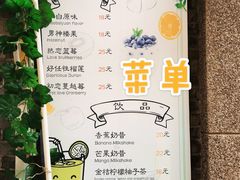 自原味 18元
男神榛果 18元
Hazelnut
热恋蓝莓 25元
Love Blueberries
好任性榴莲 25元
初恋蔓越莓 21元
Love Cranberry
菜单
饮品
香蕉奶昔 元
Banana Milkshake
芒果奶昔 元
Mango Milkshake
金桔柠檬柚子茶 16元